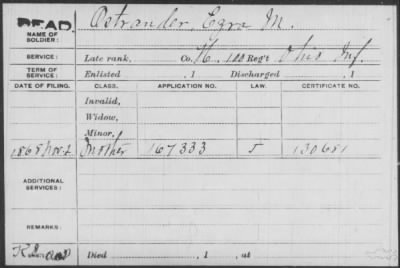 DEAD.
NAME OF SOLDIER: Ostrander, Ezra M.
SERVICE: Late rank, Co. H, 100 Reg't Ohio Inf.
TERM OF SERVICE: Enlisted , 1 Discharged , 1
DATE OF FILING. CLASS. APPLICATION NO. LAW. CERTIFICATE NO.
Invalid,
Widow,
Minor,
1868 Nov. 2 Mother 167333 J 130681
ADDITIONAL SERVICES:
REMARKS:
Died , 1 , at